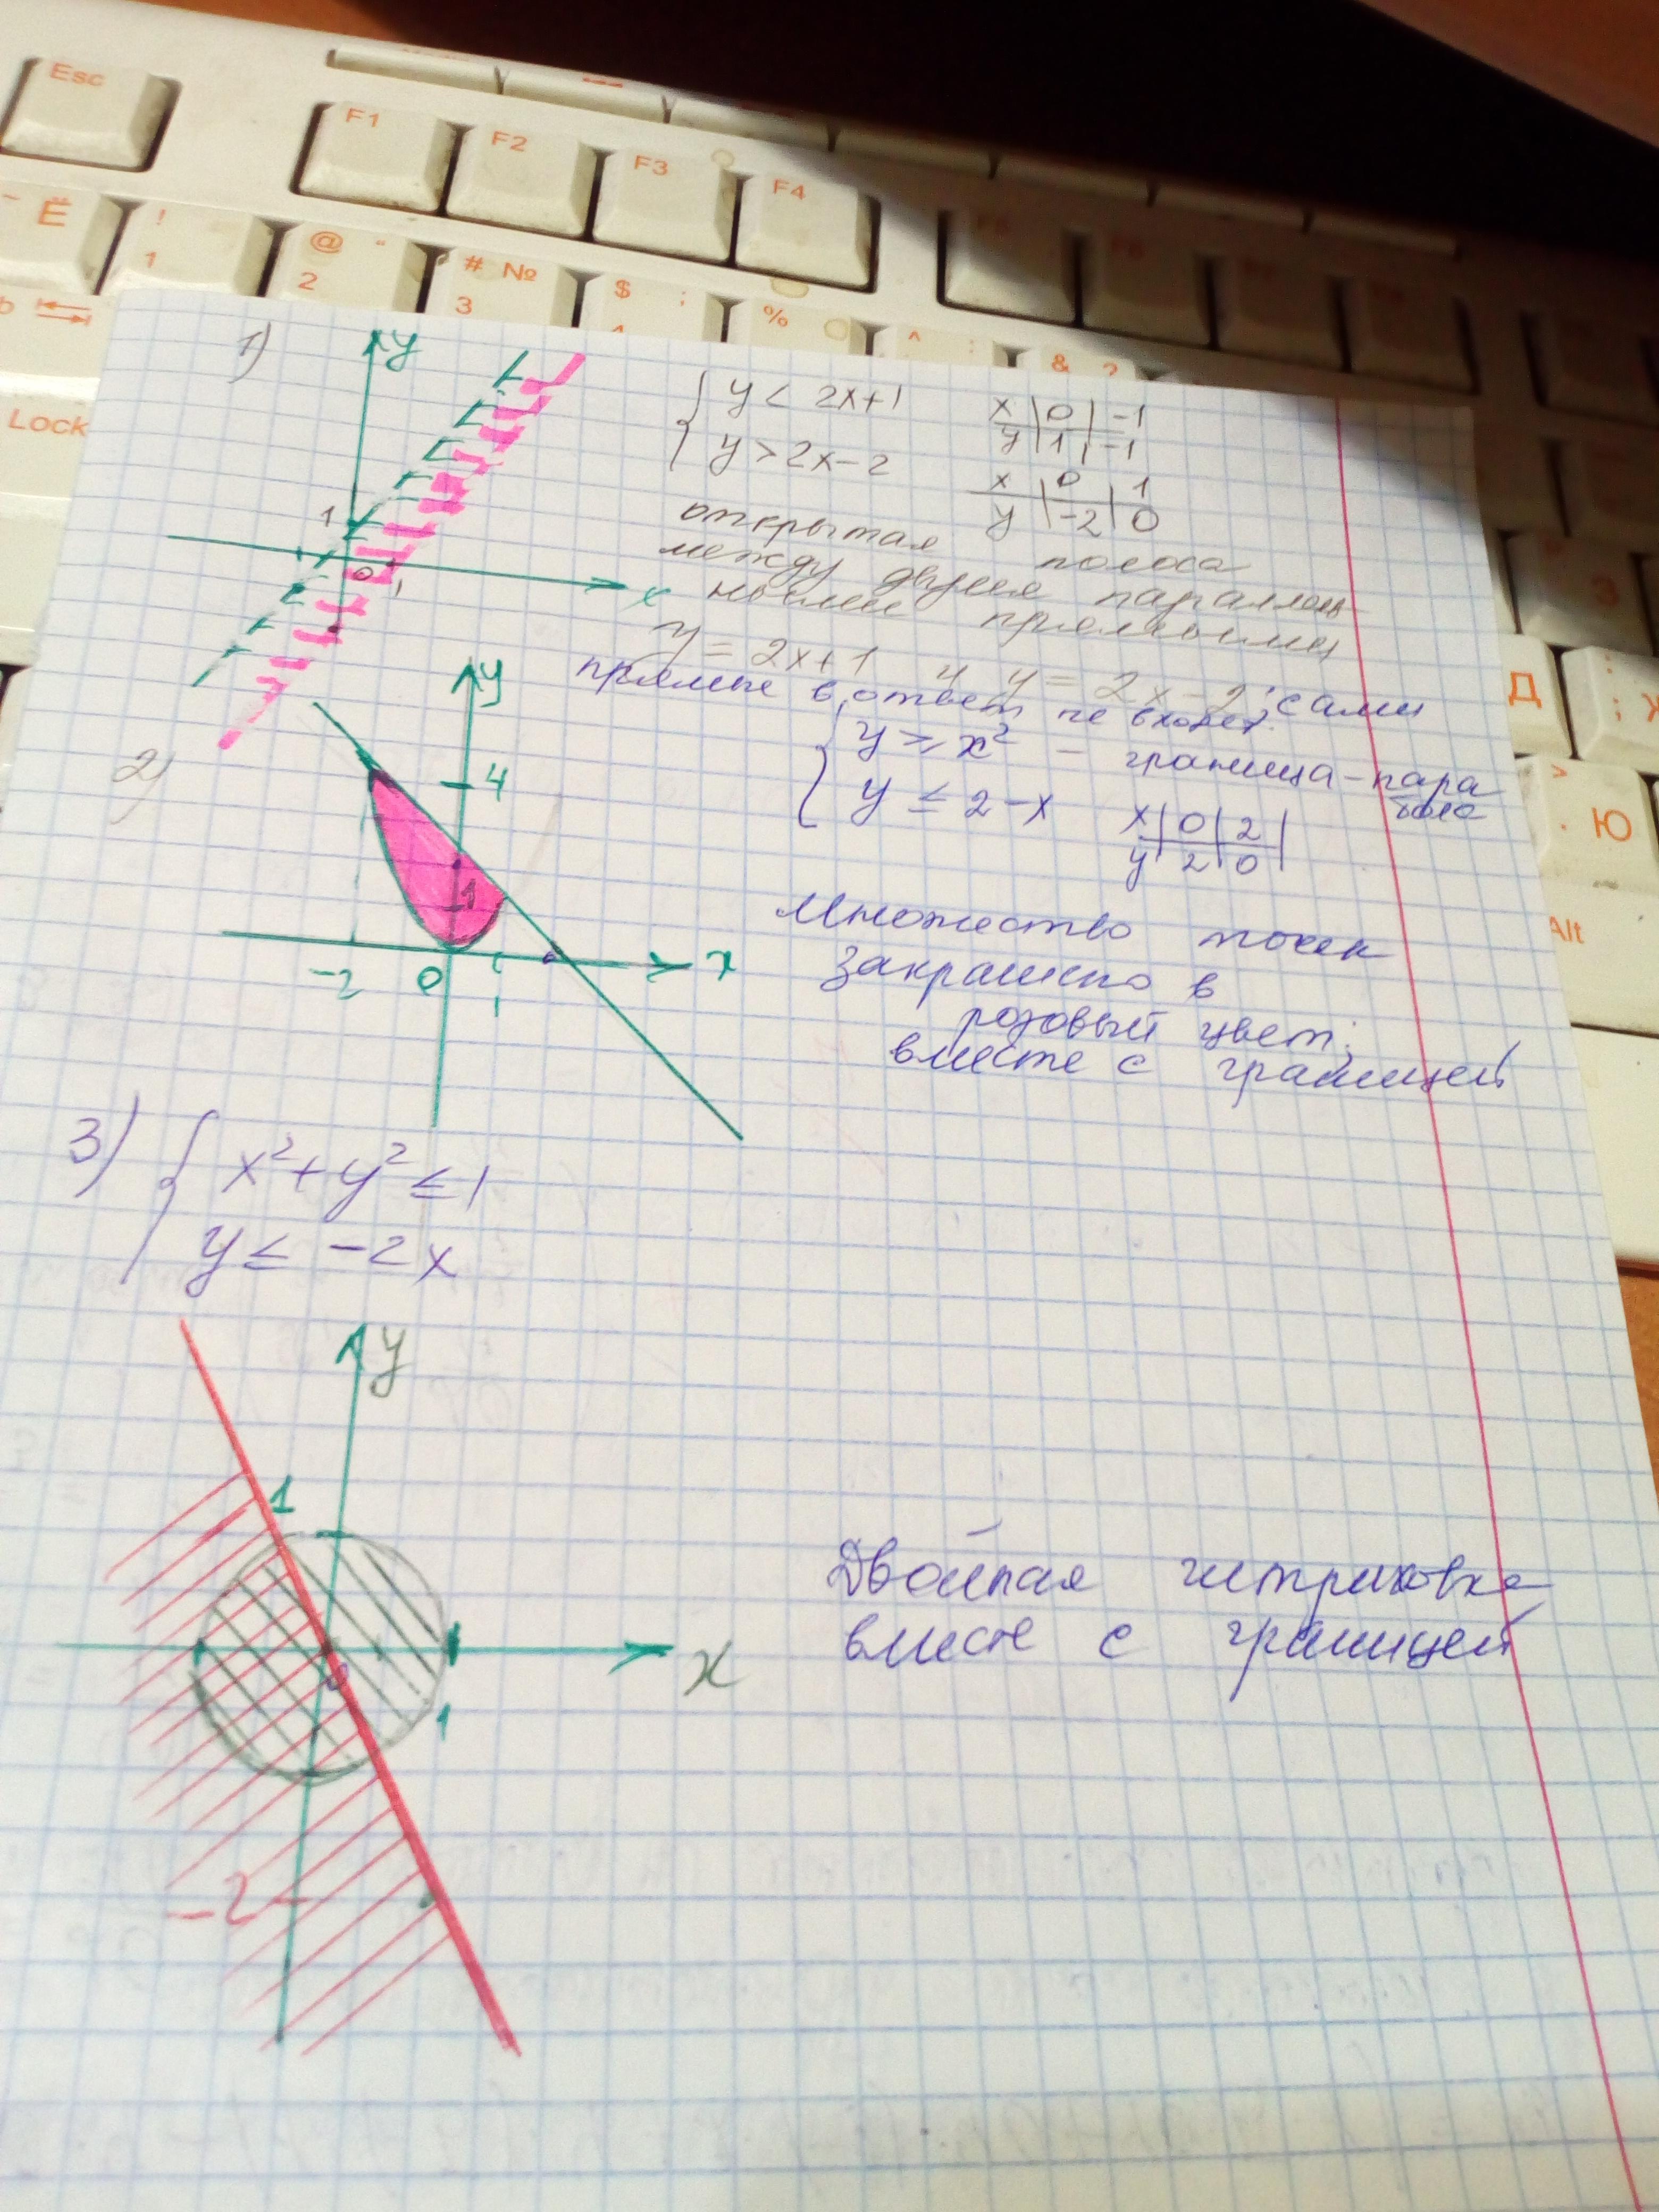 Esc
F1
F2
F3
F4
Ё
!
1
@ "
2
# №
3
$ ;
%
^ :
& ?
Lock
Д
Ю
Alt
1)
y
1
0
1
x
{ y < 2x+1
y > 2x-2
x | 0 | -1
y | 1 | -1
x | 0 | 1
y | -2 | 0
открытая полоса
между двумя параллель
ными прямыми
y = 2x+1 и y = 2x-2; сами
прямые в ответ не входят.
2)
y
4
1
-2
0
1
x
{ y ≥ x² - граница - пара
бола
y ≤ 2-x
x | 0 | 2 |
y | 2 | 0 |
Множество точек
закрашено в
розовый цвет;
вместе с границей
3) { x²+y² ≤ 1
y ≤ -2x
y
1
0
x
1
-2
Двойная штриховка
вместе с границей